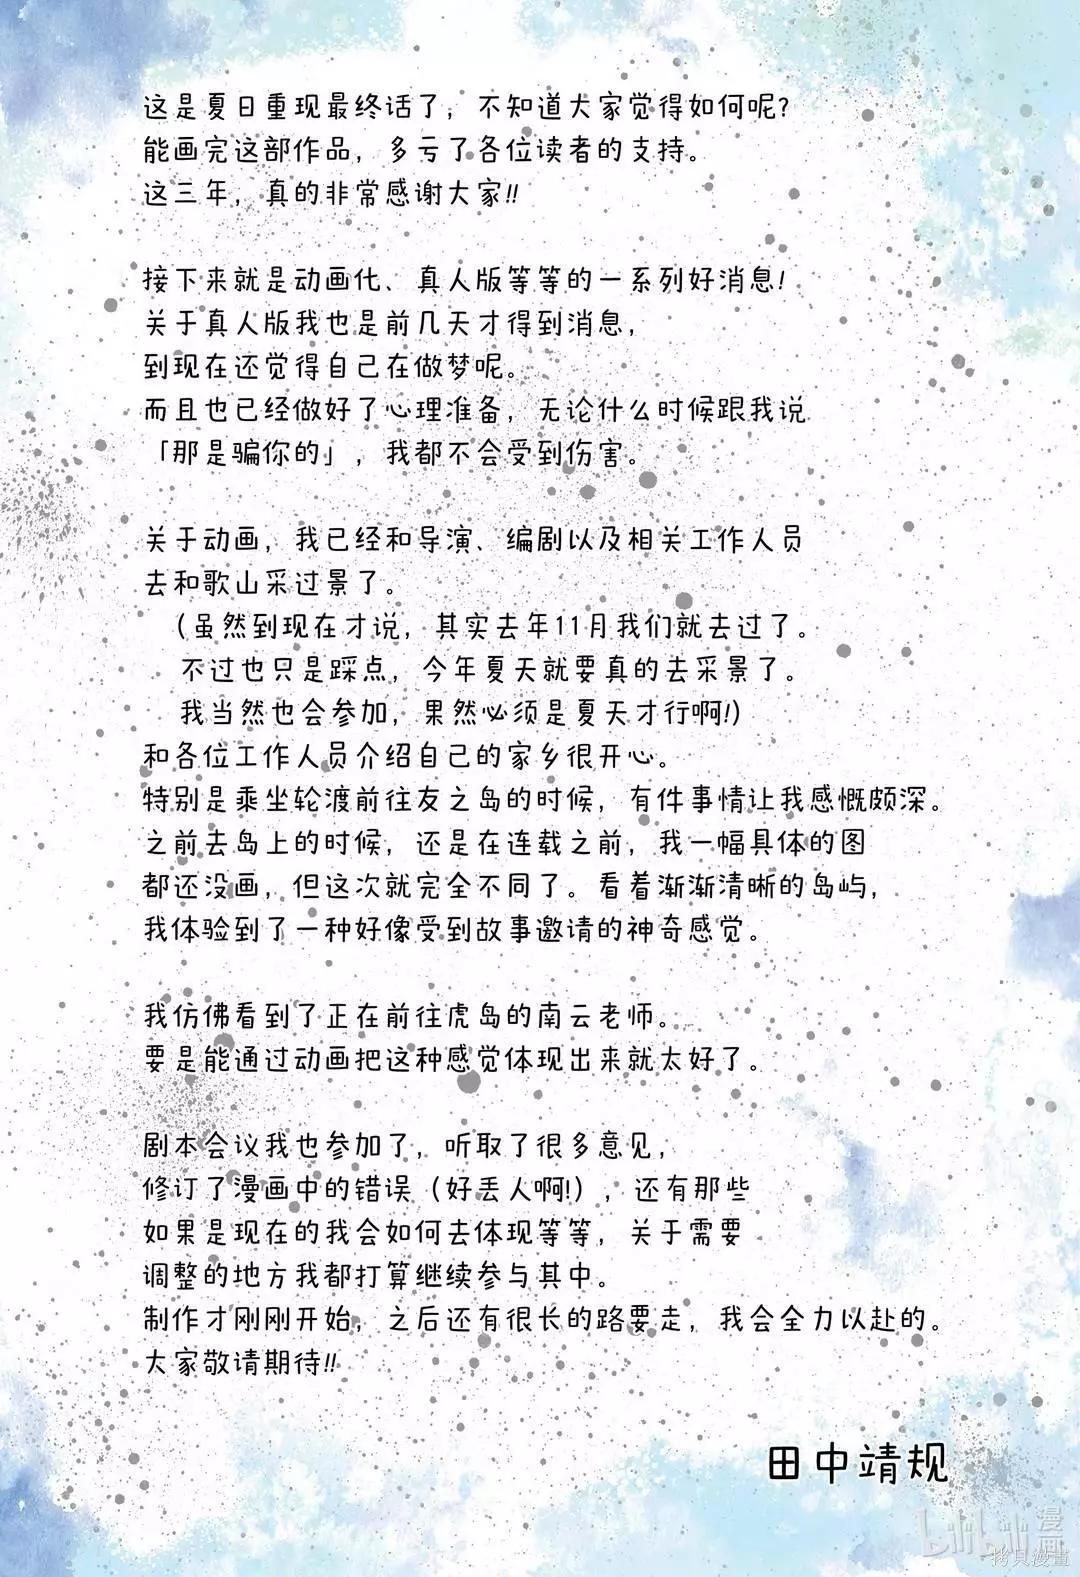 这是夏日重现最终话了，不知道大家觉得如何呢?
能画完这部作品，多亏了各位读者的支持。
这三年，真的非常感谢大家!!
接下来就是动画化、真人版等等的一系列好消息!
关于真人版我也是前几天才得到消息，
到现在还觉得自己在做梦呢。
而且也已经做好了心理准备，无论什么时候跟我说
「那是骗你的」，我都不会受到伤害。
关于动画，我已经和导演、编剧以及相关工作人员
去和歌山采过景了。
（虽然到现在才说，其实去年11月我们就去过了。
不过也只是踩点，今年夏天就要真的去采景了。
我当然也会参加，果然必须是夏天才行啊!）
和各位工作人员介绍自己的家乡很开心。
特别是乘坐轮渡前往友之岛的时候，有件事情让我感慨颇深。
之前去岛上的时候，还是在连载之前，我一幅具体的图
都还没画，但这次就完全不同了。看着渐渐清晰的岛屿，
我体验到了一种好像受到故事邀请的神奇感觉。
我仿佛看到了正在前往虎岛的南云老师。
要是能通过动画把这种感觉体现出来就太好了。
剧本会议我也参加了，听取了很多意见，
修订了漫画中的错误（好丢人啊!），还有那些
如果是现在的我会如何去体现等等，关于需要
调整的地方我都打算继续参与其中。
制作才刚刚开始，之后还有很长的路要走，我会全力以赴的。
大家敬请期待!!
田中靖规
bilibili漫画
拷贝漫畫